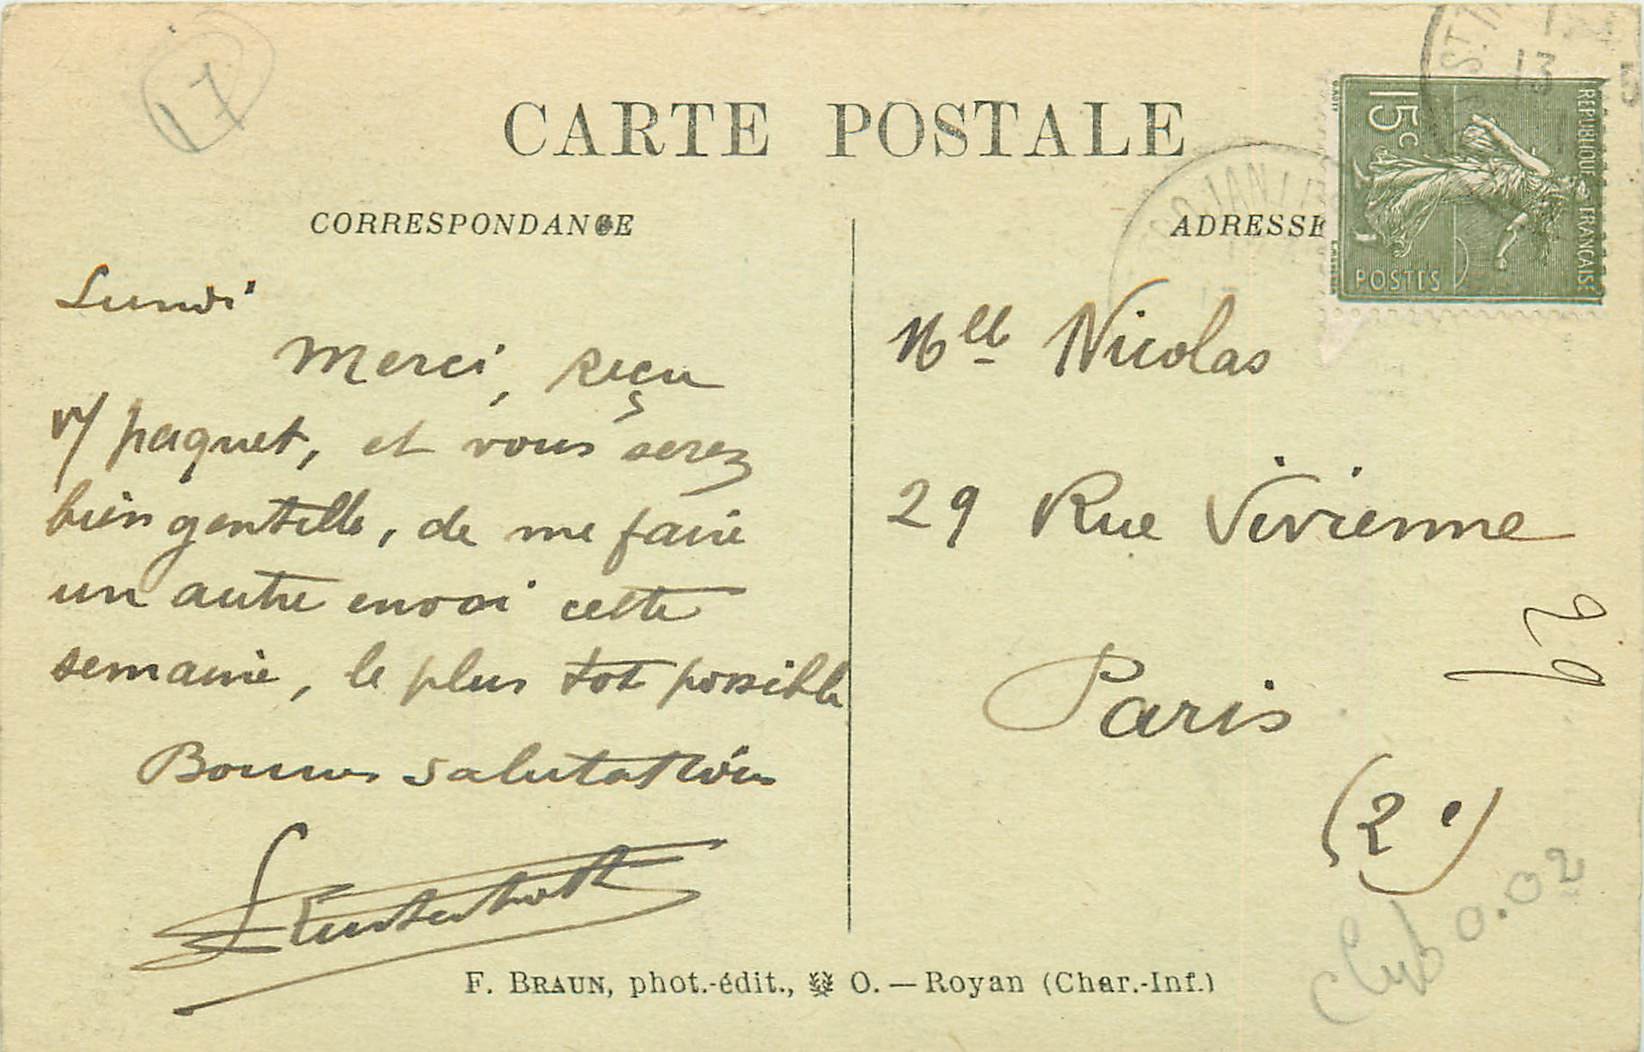 17
CARTE POSTALE
CORRESPONDANCE
ADRESSE
RÉPUBLIQUE FRANÇAISE
15c
POSTES
13
Lundi
Merci, Reçu
v/ paquet, et vous serez
bien gentille, de me faire
un autre envoi cette
semaine, le plus tot possible
Bonnes salutations
Mlle Nicolas
29 Rue Vivienne
Paris
(2e)
F. BRAUN, phot.-édit., O. — Royan (Char.-Inf.)